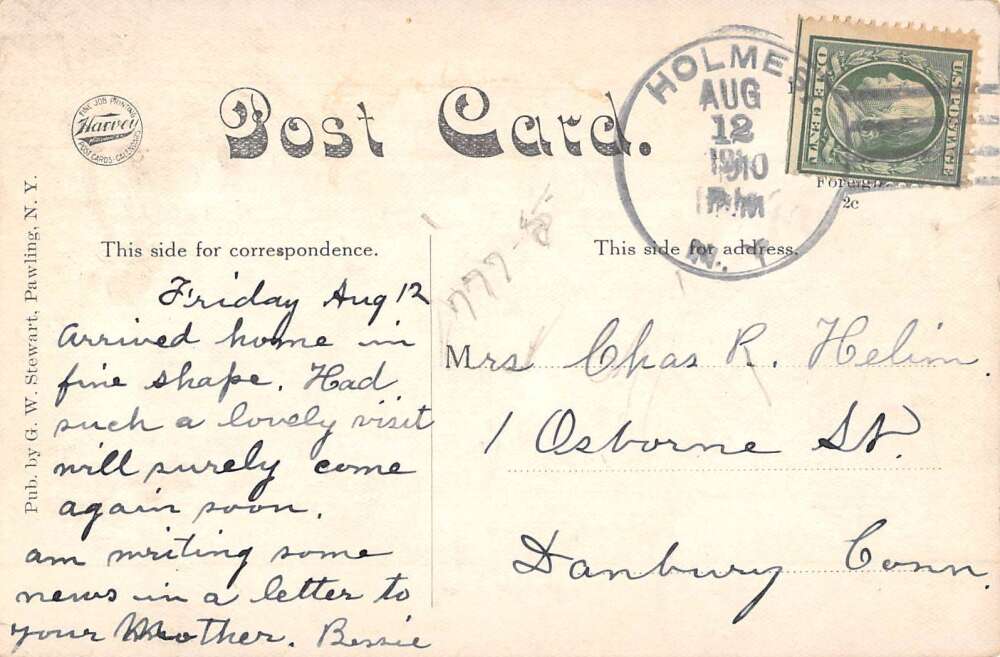 Post Card.
FINE JOB PRINTING
Harvey
POST CARDS-CALENDARS
Pub. by G. W. Stewart, Pawling, N. Y.
HOLMES
AUG
12
1910
N. Y.
ONE CENT
U.S. POSTAGE
Foreign
2c
This side for correspondence.
This side for address.
777
Friday Aug 12
Arrived home in
fine shape. Had
such a lovely visit
will surely come
again soon.
am writing some
news in a letter to
your Mother. Bessie
Mrs Chas R. Helim.
1 Osborne St.
Danbury Conn.